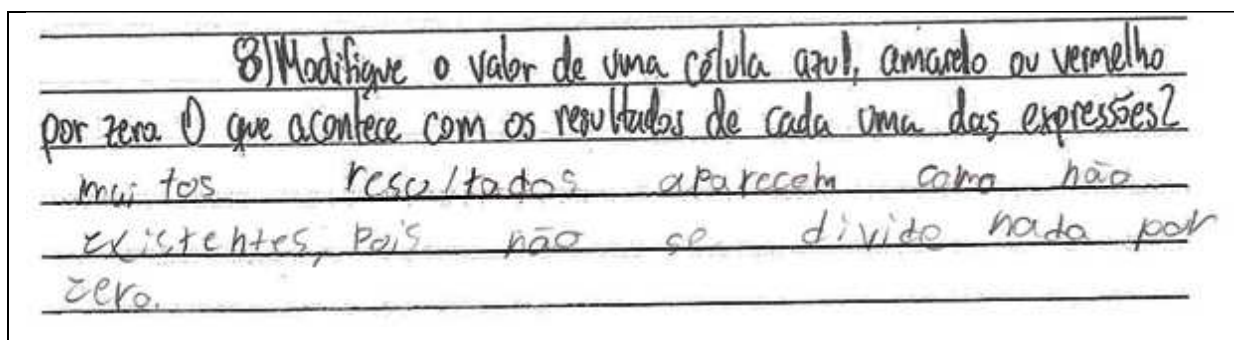 8) Modifique o valor de uma célula azul, amarelo ou vermelho
por zero. O que acontece com os resultados de cada uma das expressões?
muitos resultados aparecem como não
existentes, pois não se divide nada por
zero.